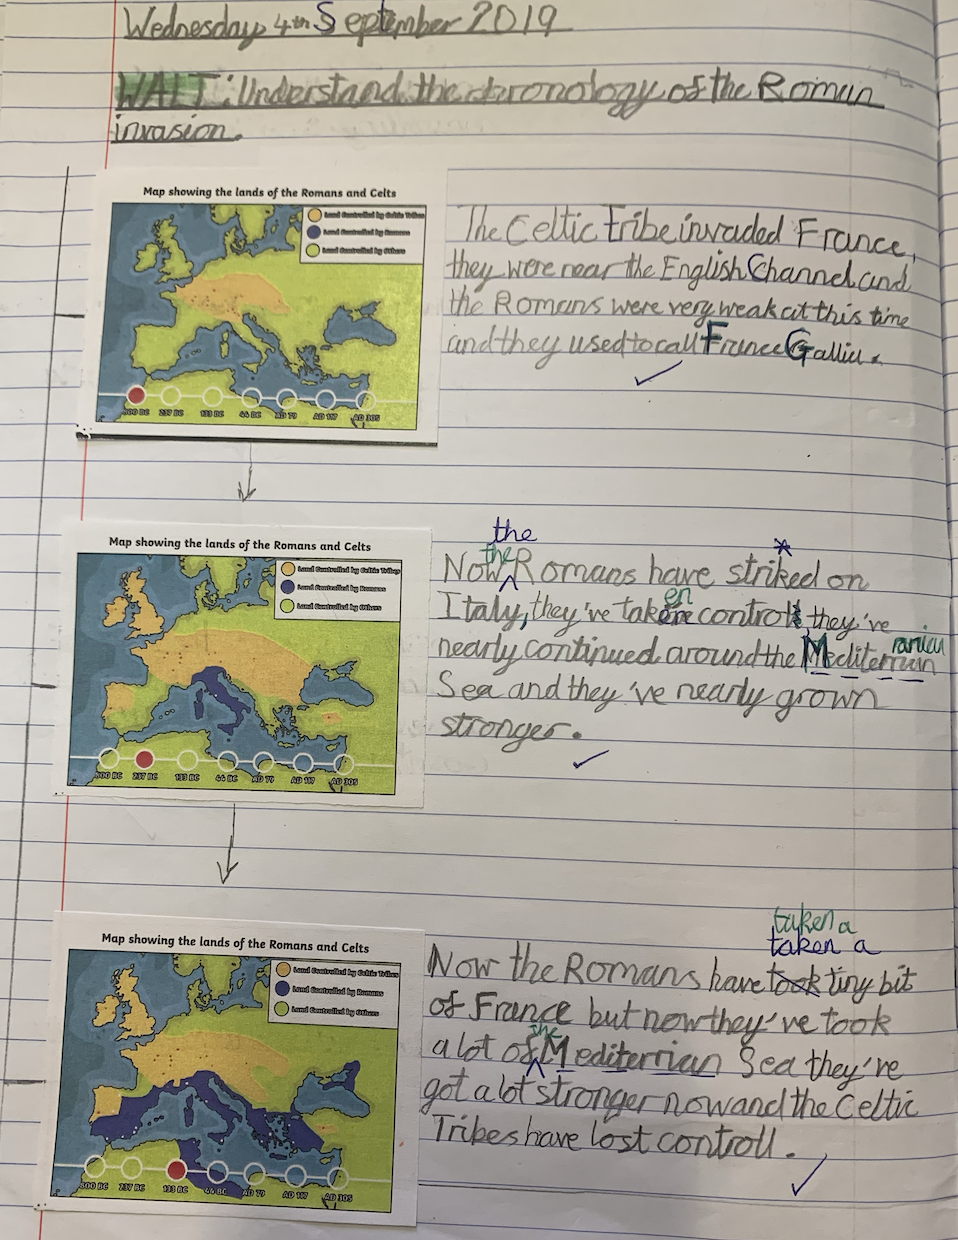 Wednesday 4th September 2019
WALT: Understand the chronology of the Roman
invasion.
Map showing the lands of the Romans and Celts
Land Controlled by Celtic Tribes
Land Controlled by Romans
Land Controlled by Others
500 BC 237 BC 133 BC 44 BC AD 79 AD 117 AD 305
The Celtic Tribe invaded France,
they were near the English Channel and
the Romans were very weak at this time
and they used to call France Gallia.
Map showing the lands of the Romans and Celts
Land Controlled by Celtic Tribes
Land Controlled by Romans
Land Controlled by Others
500 BC 237 BC 133 BC 44 BC AD 79 AD 117 AD 305
the
the
Now Romans have striked on
en
Italy, they've taken control, they've
ranian
nearly continued around the Mediterrian
Sea and they've nearly grown
stronger.
Map showing the lands of the Romans and Celts
Land Controlled by Celtic Tribes
Land Controlled by Romans
Land Controlled by Others
500 BC 237 BC 133 BC 44 BC AD 79 AD 117 AD 305
taken a
taken a
Now the Romans have took tiny bit
of France but now they've took
the
a lot of Mediterrian Sea they've
got a lot stronger now and the Celtic
Tribes have lost controll.